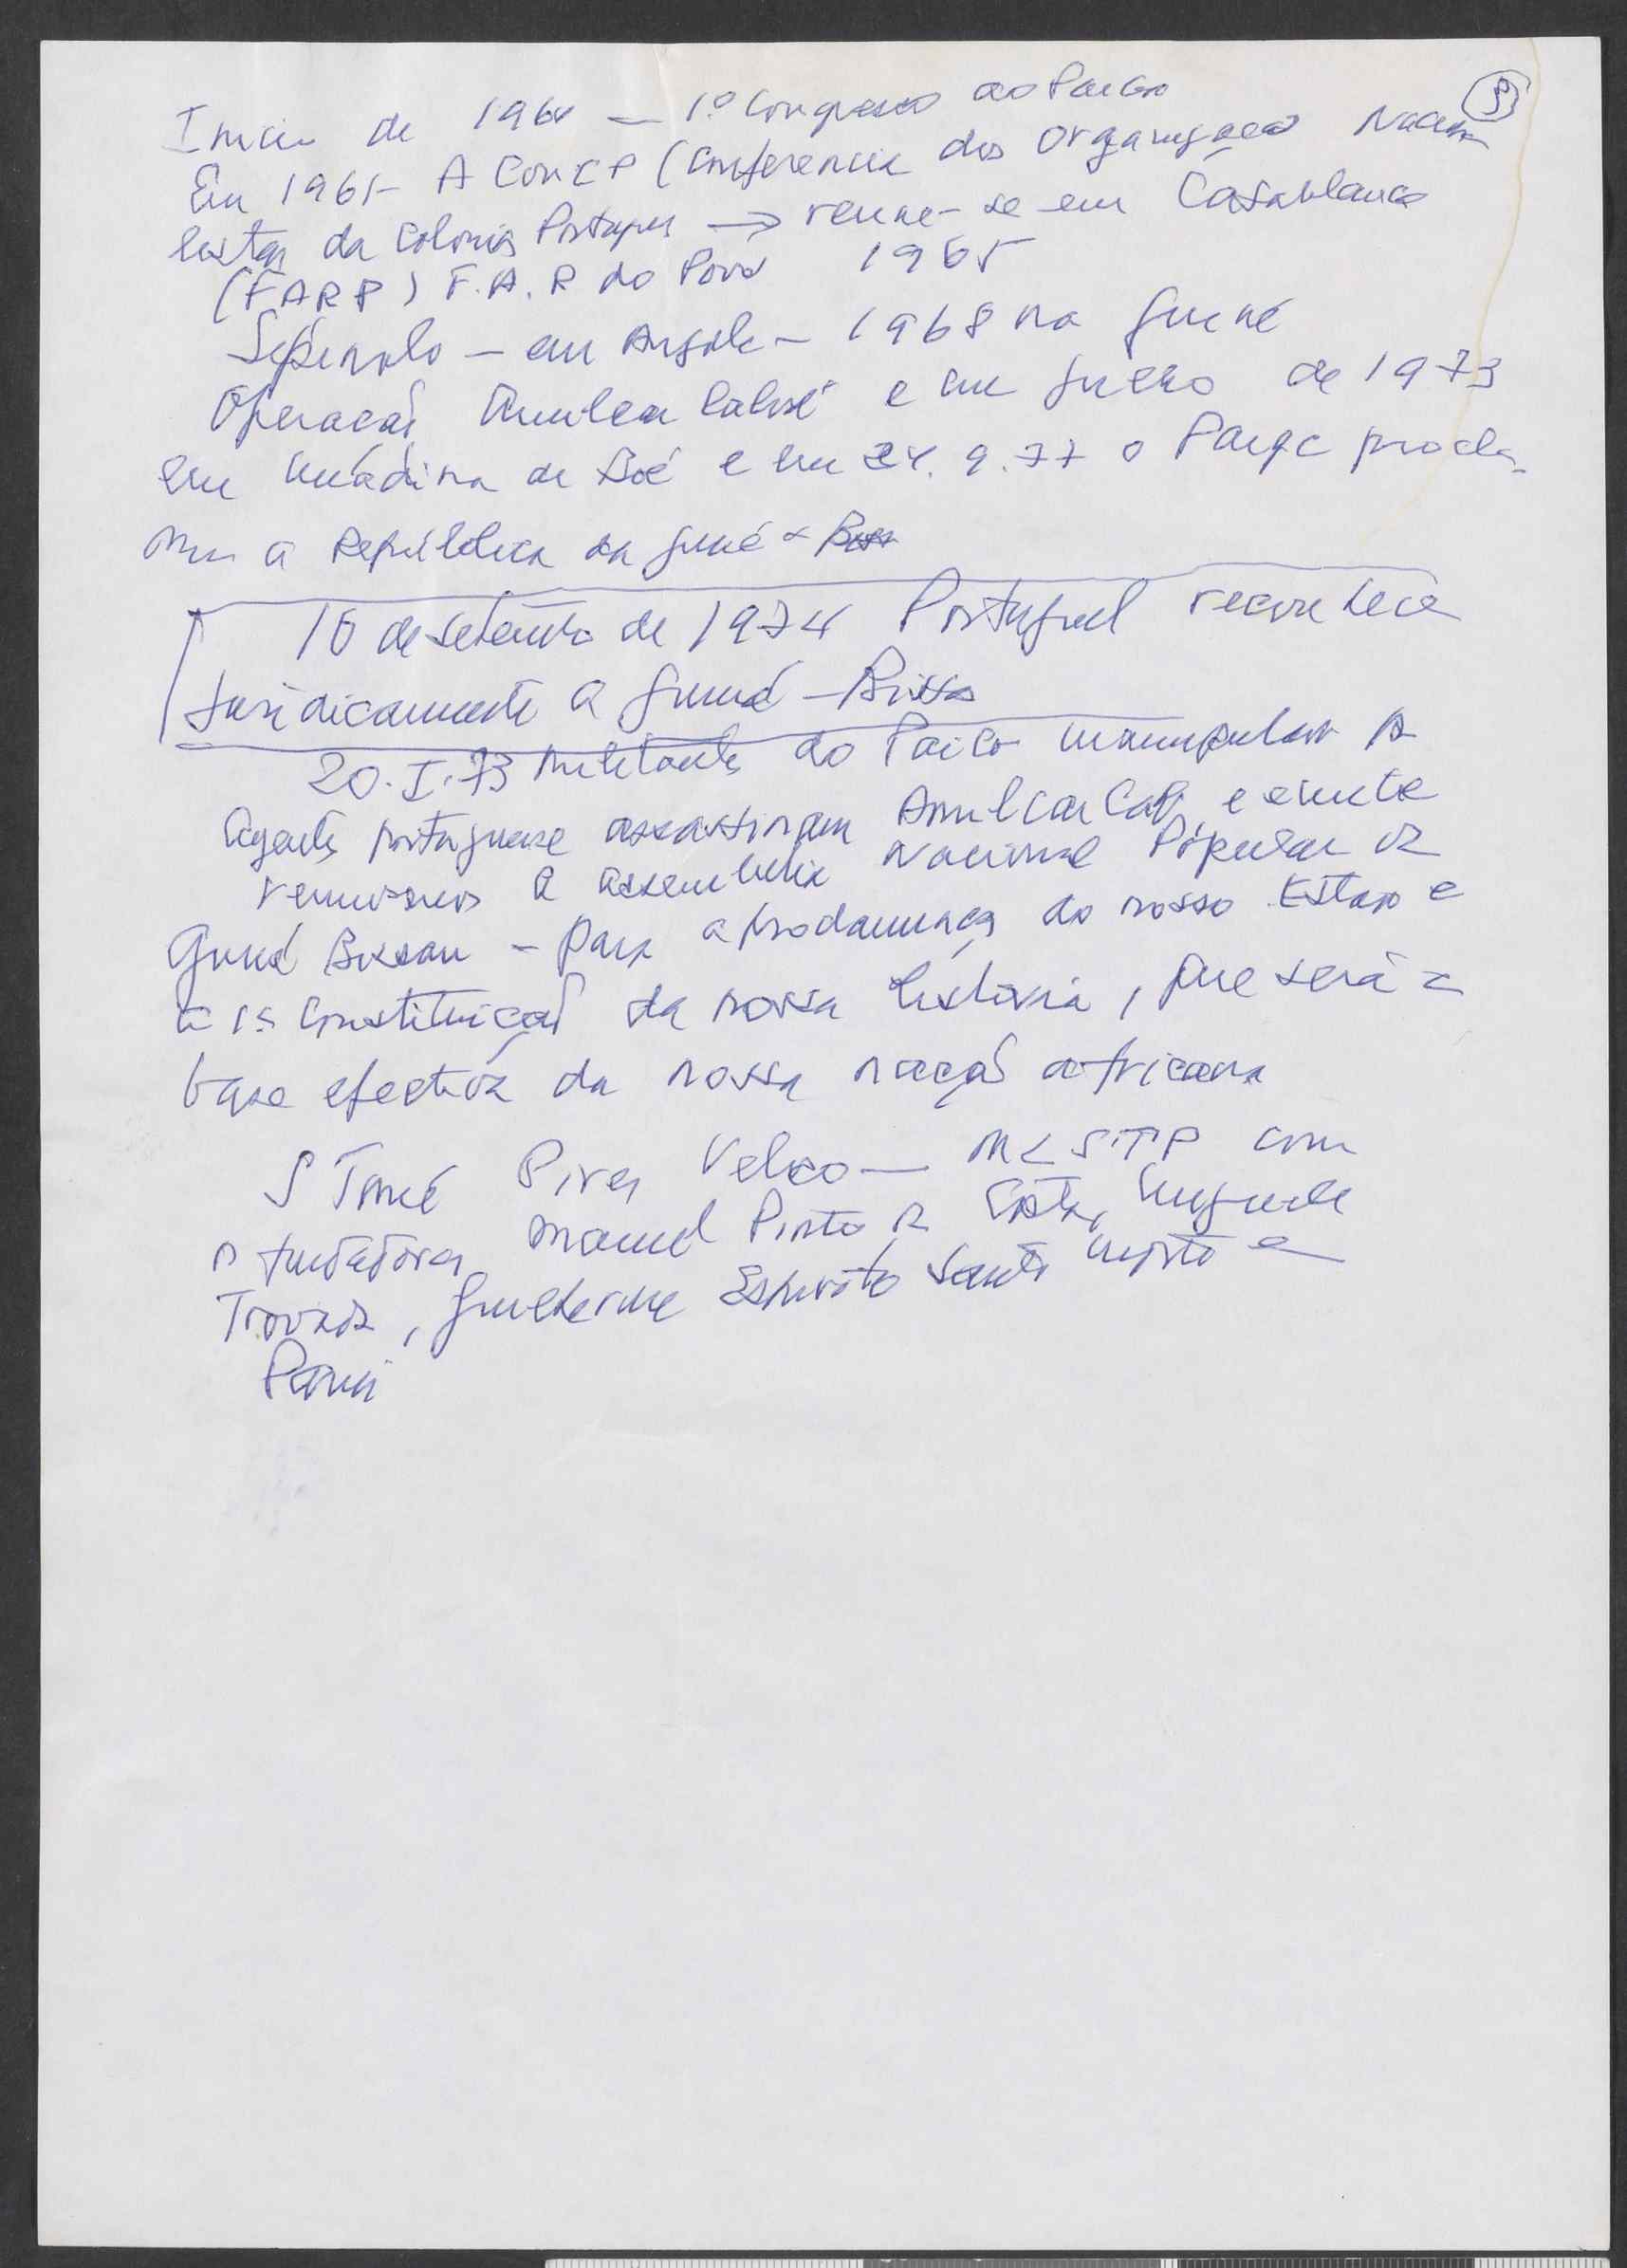 9
Inicio de 1964 — 1º Congresso do Paigc
Em 1965 A CONCP (Conferencia das Organizações Naciona
listas da Colonias Portugues → reune-se em Casablanca
(FARP) F.A.R do Povo 1965
Spinola — em Angola — 1968 na Guiné
Operação Amilcar Cabral e em Julho de 1973
em Madina de Boé e em 24.9.77 o Paigc procla-
ma a República da Guiné
10 de setembro de 1974 Portugal reconhece
Juridicamente a Guiné-Bissa
20.I.73 militantes do Paigc manipulados
Agentes portuguese assassinam Amilcar Cab e
reunimos a assembleia Nacional Popular da
Guiné Bissau - para a proclamação do nosso Estado e
a 1ª Constituição da nossa história, que será a
base efectiva da nossa nação africana
S Tomé Pires Veloso — MLSTP com
os fundadores Manuel Pinto da Costa, Miguel
Trovoada, Guilherme Espirito Santo